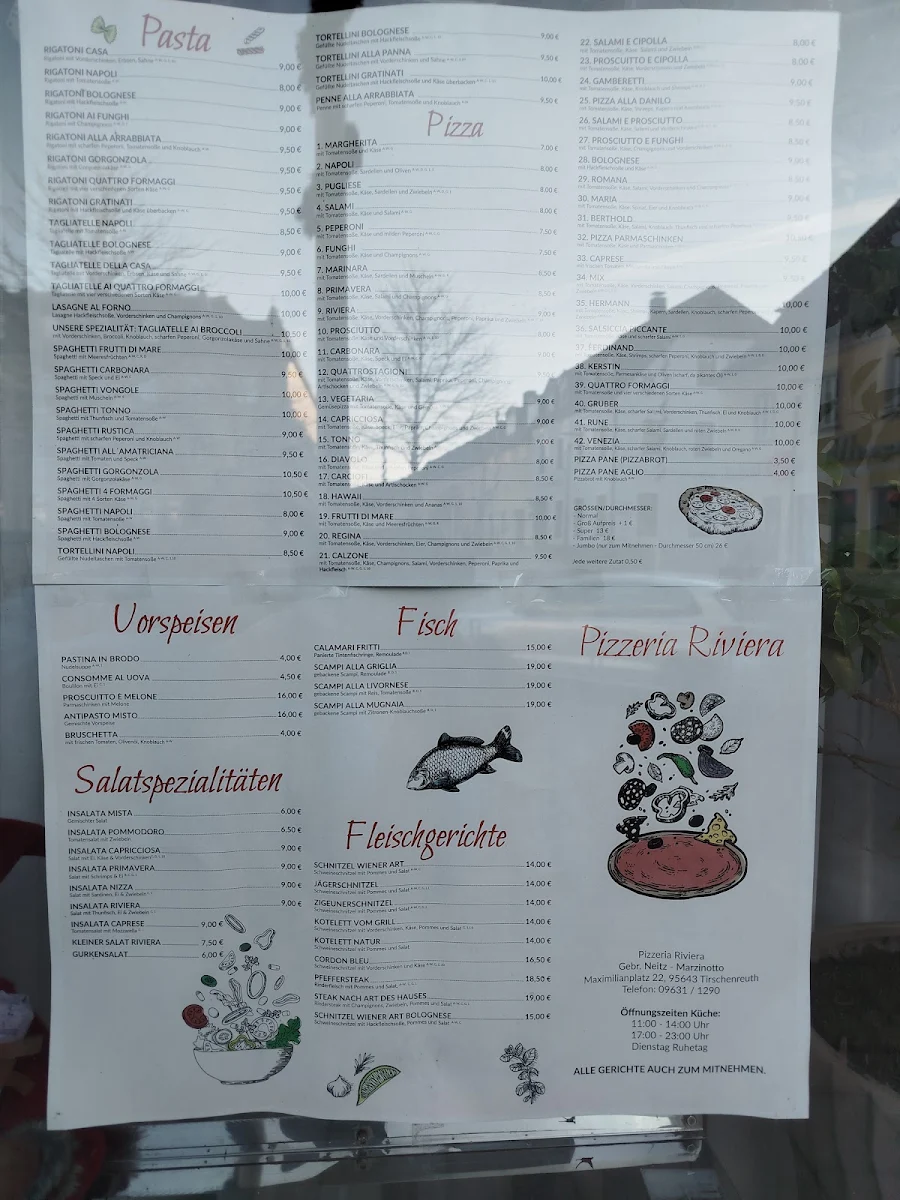 Pasta
RIGATONI CASA 9,00 €
Rigatoni mit Vorderschinken, Erbsen, Sahne
RIGATONI NAPOLI 8,00 €
Rigatoni mit Tomatensoße
RIGATONI BOLOGNESE 9,00 €
Rigatoni mit Hackfleischsoße
RIGATONI AI FUNGHI 9,00 €
Rigatoni mit Champignons
RIGATONI ALLA ARRABBIATA 9,50 €
Rigatoni mit scharfen Peperoni, Tomatensoße und Knoblauch
RIGATONI GORGONZOLA 9,50 €
Rigatoni mit Gorgonzolakäse
RIGATONI QUATTRO FORMAGGI 9,50 €
Rigatoni mit vier verschiedenen Sorten Käse
RIGATONI GRATINATI 9,50 €
Rigatoni mit Hackfleischsoße und Käse überbacken
TAGLIATELLE NAPOLI 8,50 €
Tagliatelle mit Tomatensoße
TAGLIATELLE BOLOGNESE 9,00 €
Tagliatelle mit Hackfleischsoße
TAGLIATELLE DELLA CASA 9,50 €
Tagliatelle mit Vorderschinken, Erbsen, Käse und Sahne
TAGLIATELLE AI QUATTRO FORMAGGI 10,00 €
Tagliatelle mit vier verschiedenen Sorten Käse
LASAGNE AL FORNO 10,00 €
Lasagne Hackfleischsoße, Vorderschinken und Champignons
UNSERE SPEZIALITÄT: TAGLIATELLE AI BROCCOLI 10,50 €
mit Vorderschinken, Broccoli, Knoblauch, scharfen Peperoni, Gorgonzolakäse und Sahne
SPAGHETTI FRUTTI DI MARE 10,00 €
Spaghetti mit Meeresfrüchten
SPAGHETTI CARBONARA 9,50 €
Spaghetti mit Speck und Ei
SPAGHETTI VONGOLE 10,00 €
Spaghetti mit Muscheln
SPAGHETTI TONNO 10,00 €
Spaghetti mit Thunfisch und Tomatensoße
SPAGHETTI RUSTICA 9,00 €
Spaghetti mit scharfen Peperoni und Knoblauch
SPAGHETTI ALL´AMATRICIANA 9,50 €
Spaghetti mit Tomaten und Speck
SPAGHETTI GORGONZOLA 10,50 €
Spaghetti mit Gorgonzolakäse
SPAGHETTI 4 FORMAGGI 10,50 €
Spaghetti mit 4 Sorten Käse
SPAGHETTI NAPOLI 8,00 €
Spaghetti mit Tomatensoße
SPAGHETTI BOLOGNESE 9,00 €
Spaghetti mit Hackfleischsoße
TORTELLINI NAPOLI 8,50 €
Gefüllte Nudeltaschen mit Tomatensoße
TORTELLINI BOLOGNESE 9,00 €
Gefüllte Nudeltaschen mit Hackfleischsoße
TORTELLINI ALLA PANNA 9,50 €
Gefüllte Nudeltaschen mit Vorderschinken und Sahne
TORTELLINI GRATINATI 10,00 €
Gefüllte Nudeltaschen mit Hackfleischsoße und Käse überbacken
PENNE ALLA ARRABBIATA 9,50 €
Penne mit scharfen Peperoni, Tomatensoße und Knoblauch
Pizza
1. MARGHERITA 7,00 €
mit Tomatensoße und Käse
2. NAPOLI 8,00 €
mit Tomatensoße, Sardellen und Oliven
3. PUGLIESE 8,00 €
mit Tomatensoße, Käse, Sardellen und Zwiebeln
4. SALAMI 8,00 €
mit Tomatensoße, Käse und Salami
5. PEPERONI 7,50 €
mit Tomatensoße, Käse und milden Peperoni
6. FUNGHI 7,50 €
mit Tomatensoße, Käse und Champignons
7. MARINARA 8,50 €
mit Tomatensoße, Käse, Sardinen und Muscheln
8. PRIMAVERA 8,50 €
mit Tomatensoße, Käse, Salami und Champignons
9. RIVIERA
mit Tomatensoße, Käse, Vorderschinken, Champignons, Peperoni, Paprika
10. PROSCIUTTO
mit Tomatensoße, Käse und Vorderschinken
11. CARBONARA
mit Tomatensoße, Käse, Speck und Ei
12. QUATTROSTAGIONI
mit Tomatensoße, Käse, Vorderschinken, Salami
Artischocken und Zwiebeln
13. VEGETARIA 9,00 €
14. CAPRICCIOSA 9,00 €
15. TONNO 9,00 €
16. DIAVOLO 8,00 €
17. CARCIOFI 8,50 €
mit Tomatensoße, Käse und Artischocken
18. HAWAII 8,50 €
mit Tomatensoße, Käse, Vorderschinken und Ananas
19. FRUTTI DI MARE 10,00 €
mit Tomatensoße, Käse und Meeresfrüchten
20. REGINA 8,50 €
mit Tomatensoße, Käse, Vorderschinken, Eier, Champignons und Zwiebeln
21. CALZONE 9,50 €
mit Tomatensoße, Käse, Champignons, Salami, Vorderschinken, Peperoni, Paprika und
Hackfleisch
22. SALAMI E CIPOLLA 8,00 €
mit Tomatensoße, Käse, Salami und Zwiebeln
23. PROSCIUTTO E CIPOLLA 8,00 €
24. GAMBERETTI 9,00 €
25. PIZZA ALLA DANILO 9,50 €
26. SALAMI E PROSCIUTTO 8,50 €
27. PROSCIUTTO E FUNGHI 8,50 €
28. BOLOGNESE 9,00 €
mit Hackfleischsoße und Käse
29. ROMANA
30. MARIA 9,00 €
31. BERTHOLD
32. PIZZA PARMASCHINKEN
33. CAPRESE
34. MIX
35. HERMANN 10,00 €
36. SALSICCIA PICCANTE 10,00 €
37. FERDINAND 10,00 €
mit Tomatensoße, Käse, Shrimps, scharfen Peperoni, Knoblauch und Zwiebeln
38. KERSTIN 10,00 €
39. QUATTRO FORMAGGI 10,00 €
mit Tomatensoße und vier verschiedenen Sorten Käse
40. GRUBER 10,00 €
mit Tomatensoße, Käse, scharfer Salami, Vorderschinken, Thunfisch, Ei und Knoblauch
41. RUNE 10,00 €
mit Tomatensoße, Käse, scharfer Salami, Sardellen und roten Zwiebeln
42. VENEZIA 10,00 €
mit Tomatensoße, Käse, scharfer Salami, Knoblauch, roten Zwiebeln und Oregano
PIZZA PANE (PIZZABROT) 3,50 €
PIZZA PANE AGLIO 4,00 €
Pizzabrot mit Knoblauch
GRÖSSEN/DURCHMESSER:
- Normal
- Groß Aufpreis + 1 €
- Super 13 €
- Familien 18 €
- Jumbo (nur zum Mitnehmen - Durchmesser 50 cm) 26 €
Jede weitere Zutat 0,50 €
Vorspeisen
PASTINA IN BRODO 4,00 €
Nudelsuppe
CONSOMME AL UOVA 4,50 €
Bouillon mit Ei
PROSCUITTO E MELONE 16,00 €
Parmaschinken mit Melone
ANTIPASTO MISTO 16,00 €
Gemischte Vorspeise
BRUSCHETTA 4,00 €
mit frischen Tomaten, Olivenöl, Knoblauch
Salatspezialitäten
INSALATA MISTA 6,00 €
Gemischter Salat
INSALATA POMMODORO 6,50 €
Tomatensalat mit Zwiebeln
INSALATA CAPRICCIOSA 9,00 €
Salat mit Ei, Käse & Vorderschinken
INSALATA PRIMAVERA 9,00 €
Salat mit Schrimps & Ei
INSALATA NIZZA 9,00 €
Salat mit Sardinen, Ei & Zwiebeln
INSALATA RIVIERA 9,00 €
Salat mit Thunfisch, Ei & Zwiebeln
INSALATA CAPRESE 9,00 €
Tomatensalat mit Mozzarella
KLEINER SALAT RIVIERA 7,50 €
GURKENSALAT 6,00 €
Fisch
CALAMARI FRITTI 15,00 €
Panierte Tintenfischringe, Remoulade
SCAMPI ALLA GRIGLIA 19,00 €
gebackene Scampi, Remoulade
SCAMPI ALLA LIVORNESE 19,00 €
gebackene Scampi mit Reis, Tomatensoße
SCAMPI ALLA MUGNAIA 19,00 €
gebackene Scampi mit Zitronen-Knoblauchsoße
Fleischgerichte
SCHNITZEL WIENER ART 14,00 €
Schweineschnitzel mit Pommes und Salat
JÄGERSCHNITZEL 14,00 €
Schweineschnitzel mit Pommes und Salat
ZIGEUNERSCHNITZEL 14,00 €
Schweineschnitzel mit Pommes und Salat
KOTELETT VOM GRILL 14,00 €
Schweineschnitzel mit Vorderschinken, Käse, Pommes und Salat
KOTELETT NATUR 14,00 €
Schweineschnitzel mit Pommes und Salat
CORDON BLEU 16,50 €
Schweineschnitzel mit Vorderschinken und Käse
PFEFFERSTEAK 18,50 €
Rinderfleisch mit Pommes und Salat
STEAK NACH ART DES HAUSES 19,00 €
Rindersteak mit Champignons, Zwiebeln, Pommes und Salat
SCHNITZEL WIENER ART BOLOGNESE 15,00 €
Schweineschnitzel mit Hackfleischsoße, Pommes und Salat
Pizzeria Riviera
Pizzeria Riviera
Gebr. Neitz - Marzinotto
Maximilianplatz 22, 95643 Tirschenreuth
Telefon: 09631 / 1290
Öffnungszeiten Küche:
11:00 - 14:00 Uhr
17:00 - 23:00 Uhr
Dienstag Ruhetag
ALLE GERICHTE AUCH ZUM MITNEHMEN.